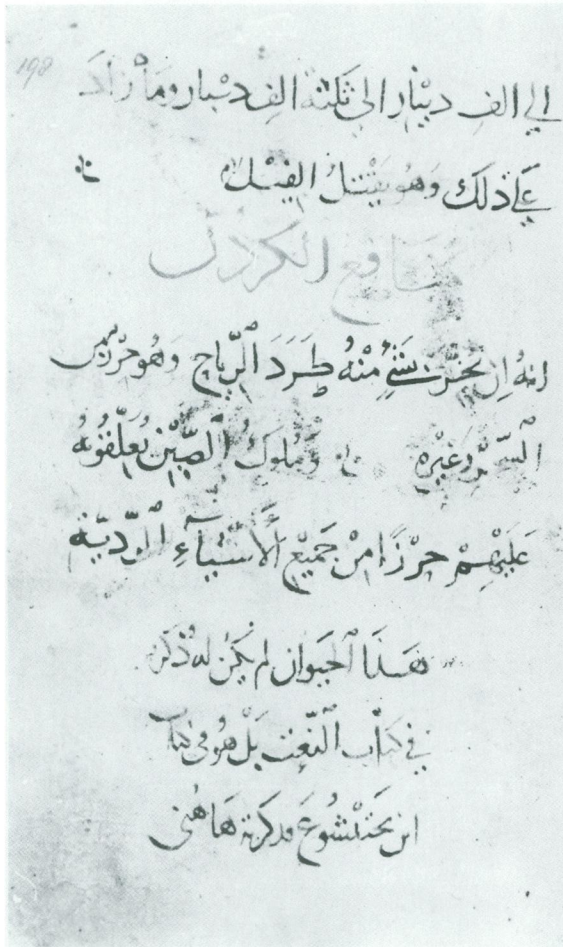 198
الي الف دينار الى ثلثة الف دينار وما زاد
علي ذلك وهو يقتل الفيل
منافع الكركدن
انه ان بخر بشيء منه طرد الرياح وهو حرز من
السحر وغيره وملوك الصين يعلقونه
عليهم حرزا من جميع الأشياء الردية
هذا الحيوان لم يكن له ذكر
في كتاب النعت بل هو في كتاب
ابن بختشوع فذكرته هاهنى